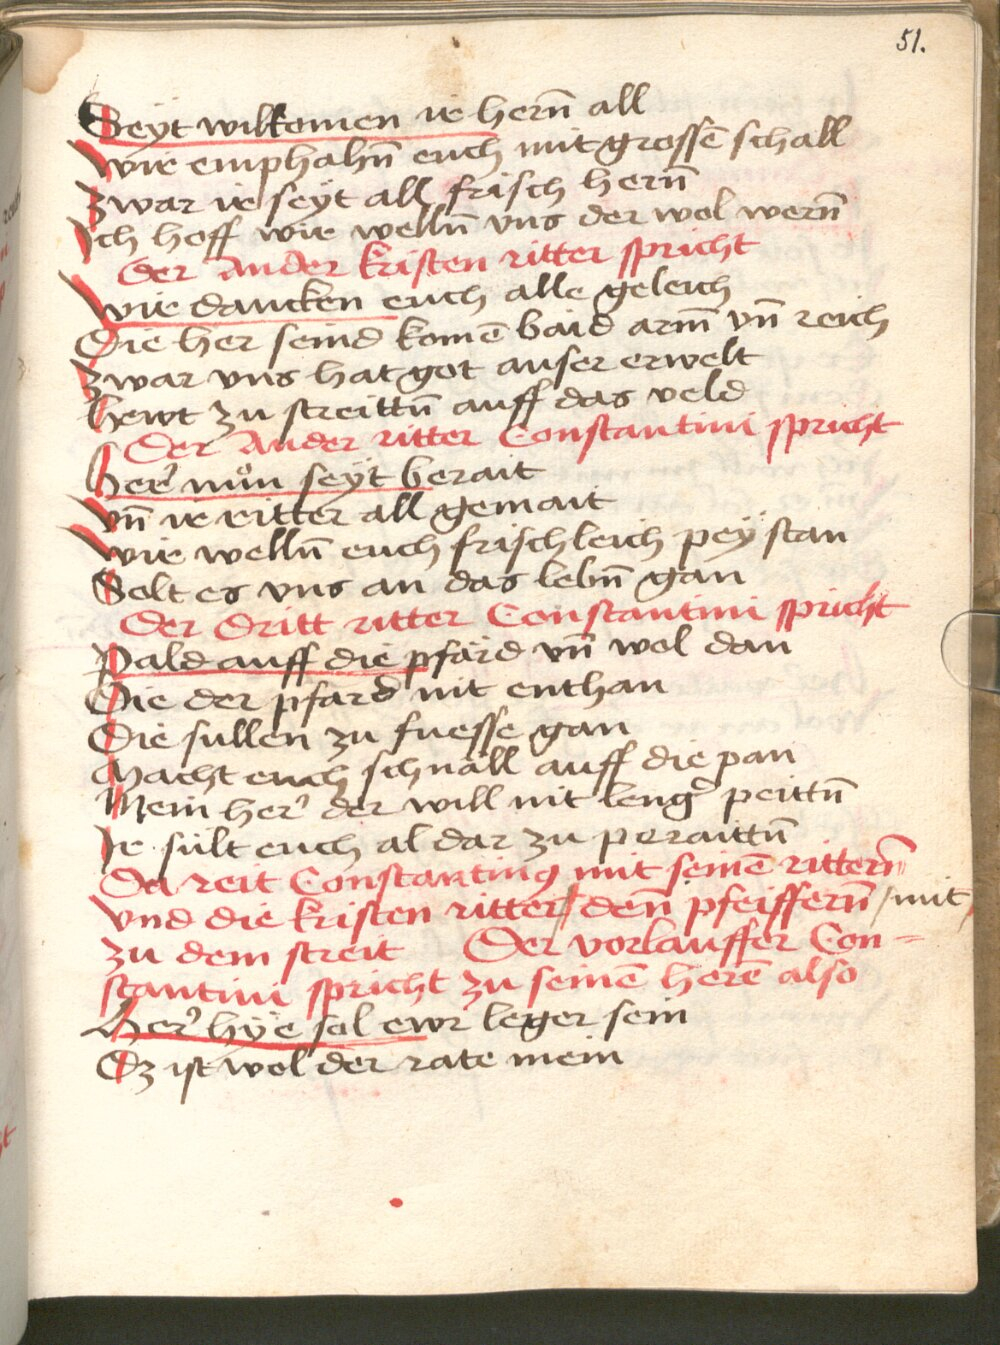 51.
Seyt wilkomen ir hern̄ all
Wir emphahn̄ euch mit grossē schall
Zwar ir seyt all frisch hern̄
Ich hoff wir welln̄ vns der wol wern̄
Der Ander kristen ritter spricht
Wir dancken euch alle geleich
Die her seind komē baid arm̄ vn̄ reich
Zwar vns hat got auser erwelt
Hewt zu streittn̄ auff das veld
Der Ander ritter Constantini spricht
Her̄ nuͦn seyt berait
Vn̄ ir ritter all gemait
Wir welln̄ euch frischleich pey stan
Solt es vns an das lebn̄ gan
Der Dritt ritter Constantini spricht
Pald auff die pfärd vn̄ wol dan
Die der pfard nit enthan
Die sullen zu fuesse gan
Macht euch schnäll auff die pan
Mein her̄ der will nit leng̉ peittn̄
Ir sült euch al dar zu peraittn̄
Da reit Constantinꝰ mit seinē rittern̄
Vnd die kristen ritter / den̄ pfeiffern̄ / mit /
zu dem streit Der vorlauffer Con-
stantini spricht zu seinē herē also
Her̄ hye sol ewr leger sein
Ez ist wol der rate mein